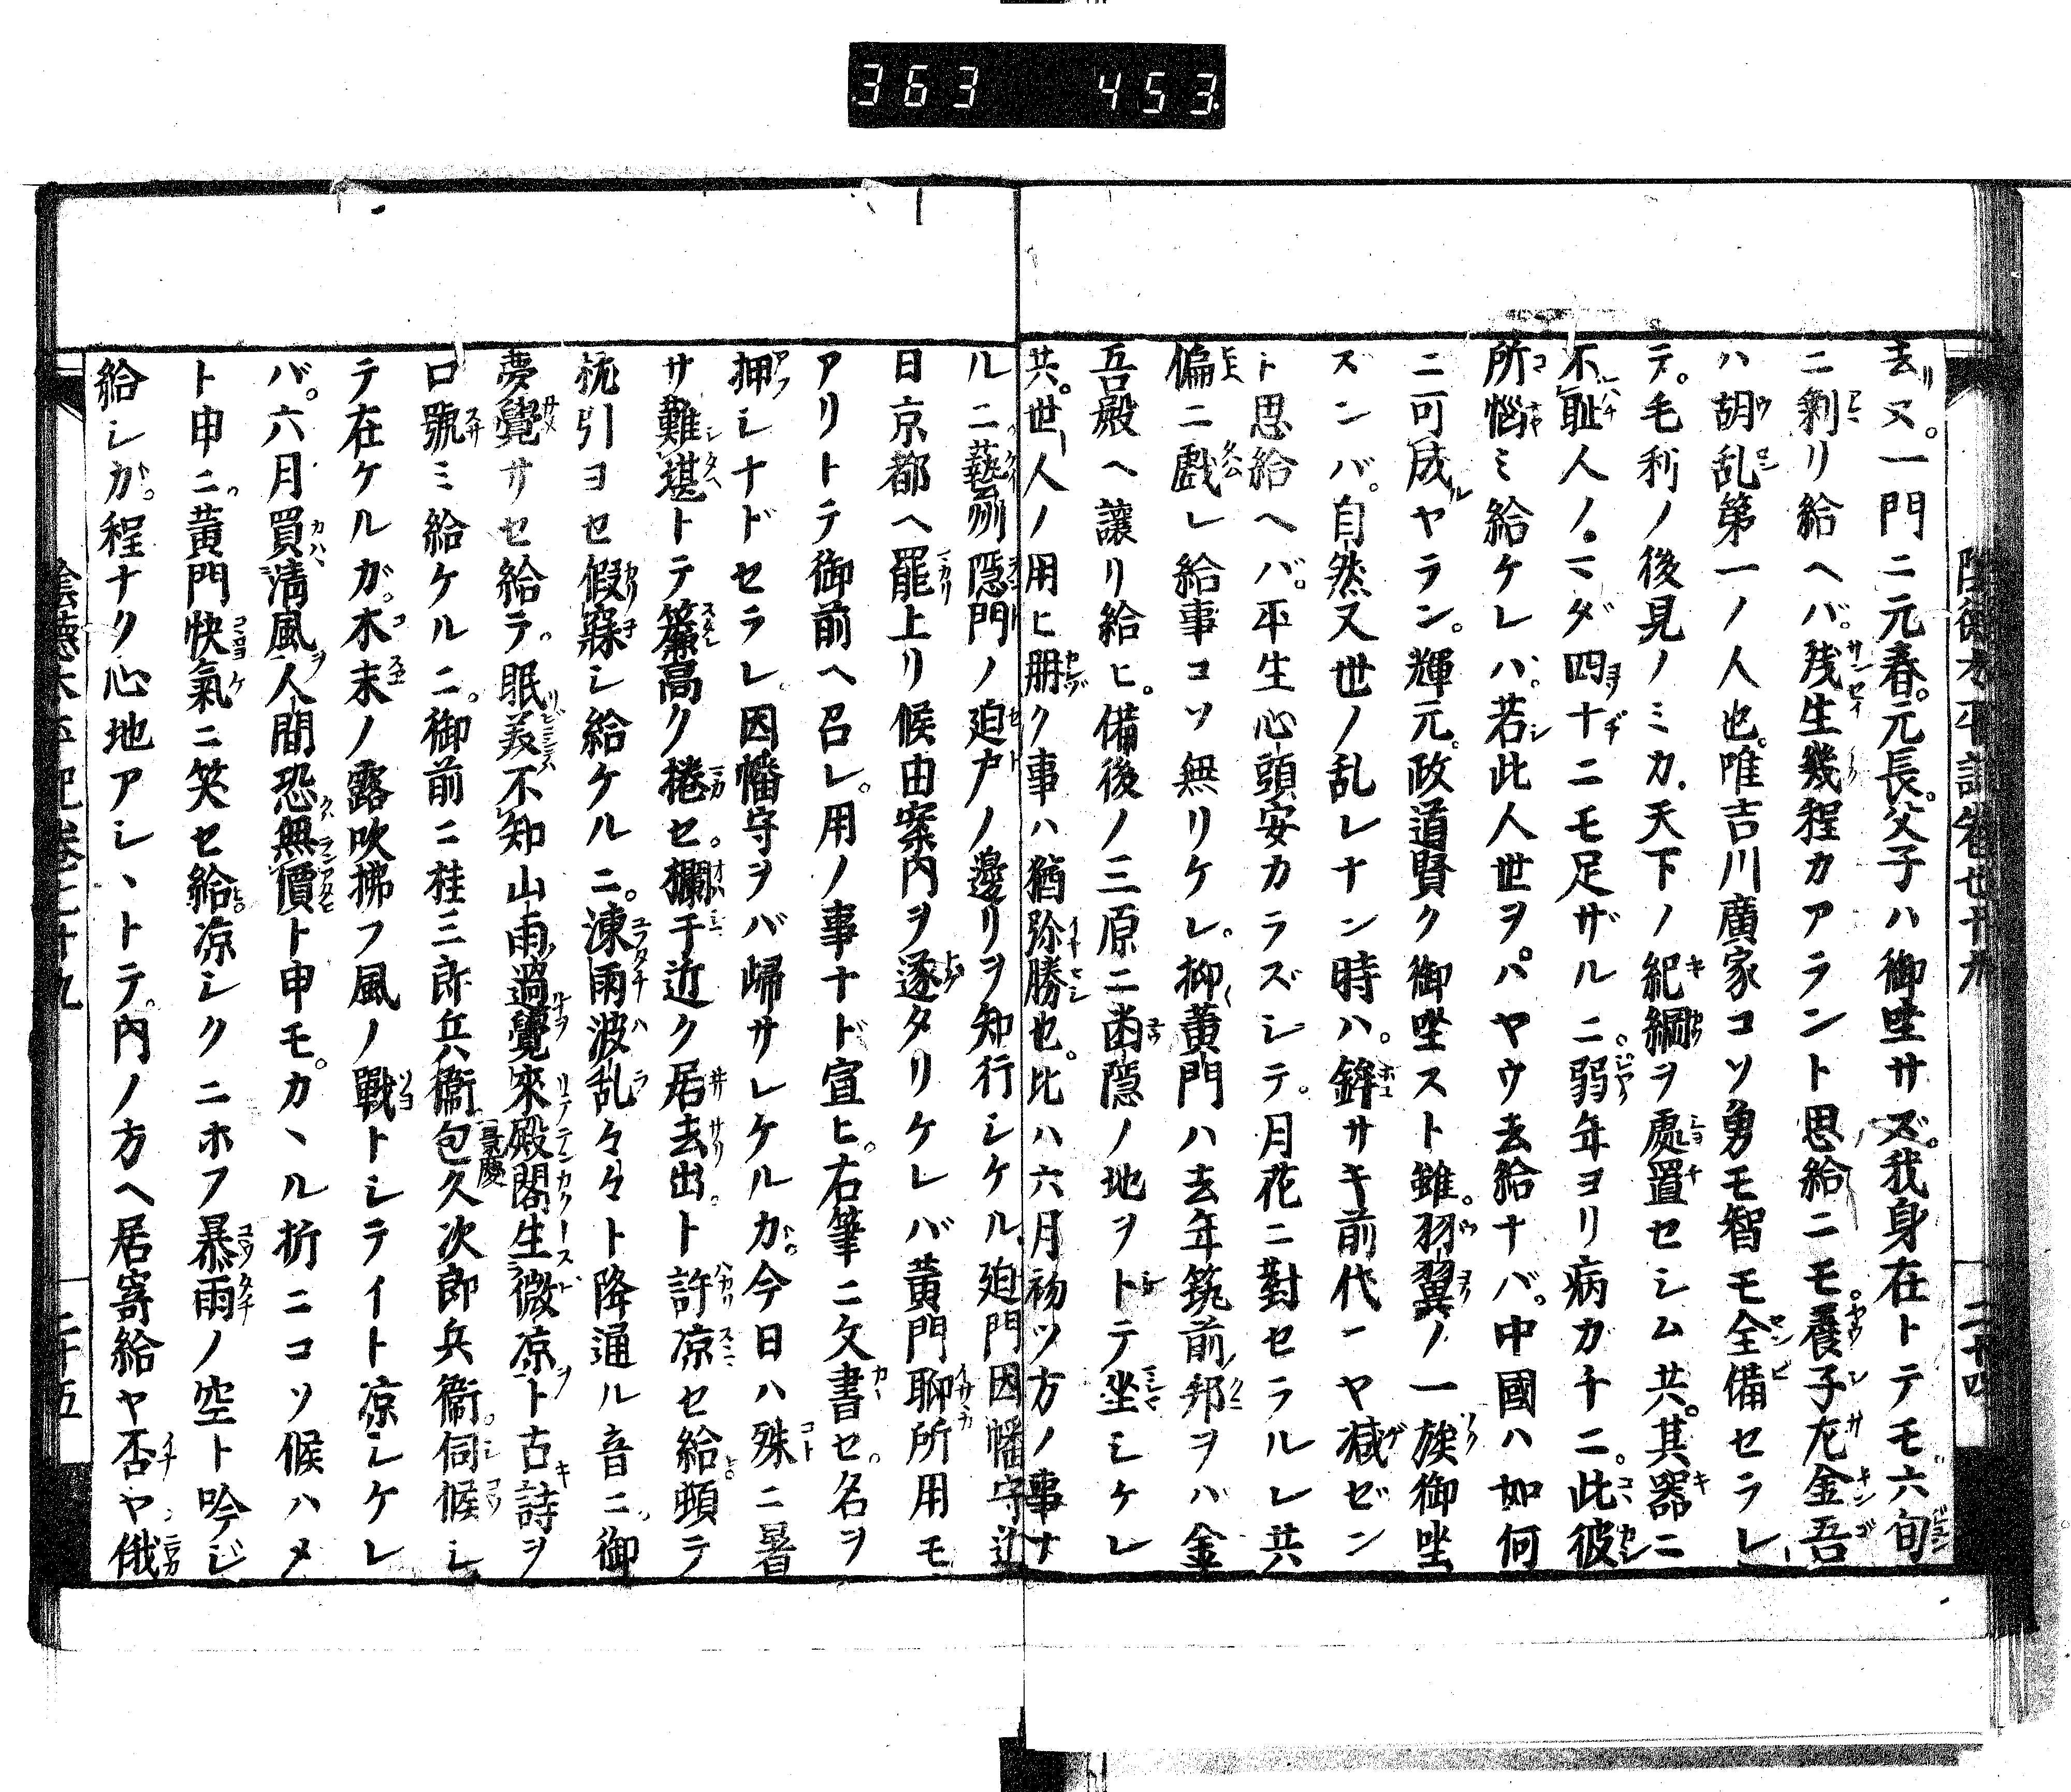 363 453
去リ又。一門ニ元春。元長。父子ハ御坐サズ。我身在トテモ六旬
ニ剰リ給ヘバ。残生幾程カアラント思給ニモ。養子左金吾
ハ胡乱第一ノ人也。唯吉川廣家コソ勇モ智モ全備セラレ
テ。毛利ノ後見ノミカ。天下ノ紀綱ヲ處置セシム共。其器ニ
不恥人ノ。マダ四十ニモ足ザルニ。弱年ヨリ病ガチニ。此彼
所悩ミ給ケレバ。若此人世ヲ。ハヤウ去給ナバ。中國ハ如何
ニ可成ヤラン。輝元。政道賢ク御坐スト雖。羽翼ノ一族御坐
ズンバ。自然又世ノ乱レナン時ハ。鋒サキ前代ーヤ減ゼン
ト思給ヘバ。平生心頭安カラズシテ。月花ニ對セラルレ共
偏ニ戯レ給事コソ無リケレ。抑黄門ハ去年筑前ノ邦ヲバ金
吾殿ヘ讓リ給ヒ。備後ノ三原ニ菟隠ノ地ヲトテ坐シケレ
共。世人ノ用ヒ冊ク事ハ猶弥勝也。比ハ六月初ツ方ノ事ナ
ルニ藝州隠門ノ迫戸ノ邊リヲ知行シケル迫門因幡守近
日京都ヘ罷上リ候由案内ヲ遂タリケレバ黄門聊所用モ
アリトテ御前ヘ召レ。用ノ事ナド宣ヒ。右筆ニ文書セ。名ヲ
押シナドセラレ。因幡守ヲバ帰サレケルガ。今日ハ殊ニ暑
サ難堪トテ簾高ク捲セ。欄干近ク居去出。ト許凉セ給。頓テ
枕引ヨセ假寐シ給ケルニ。凍雨波乱々々ト降通ル音ニ。御
夢覺サセ給テ。眠美不知山雨過覺來殿閣生微凉ト古詩ヲ
口號ミ給ケルニ。御前ニ桂三郎兵衞包久次郎兵衞。伺候シ
景慶
テ在ケルガ。木末ノ露吹拂フ風ノ戰トシテイト凉シケレ
バ。六月買清風人間恐無價ト申モ。カヽル折ニコソ候ハメ
ト申ニ。黄門快氣ニ笑セ給。凉シクニホフ暴雨ノ空ト吟ジ
給シガ。程ナク心地アシヽトテ。内ノ方ヘ居寄給ヤ否ヤ俄
陰徳太平記巻七十九 二十四
陰徳太平記巻七十九 二十五